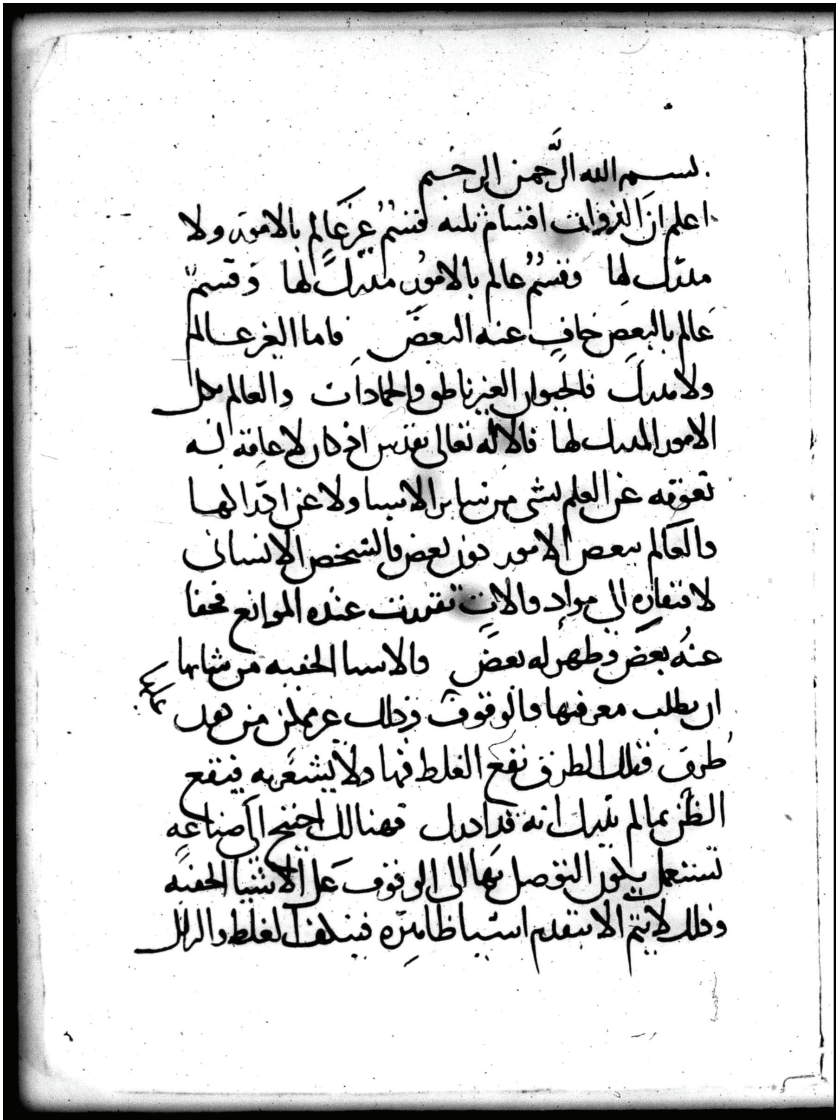 بسم الله الرحمن الرحيم
اعلم ان الذوات اقسام ثلثه فقسم غير عالم بالامور ولا
مدرك لها وقسم عالم بالامور مدرك لها وقسم
عالم بالبعض خاف عنه البعض فاما الغير عالم
ولا مدرك فالحيوان الغير ناطق والجمادات والعالم بكل
الامور المدرك لها فالاله تعالى تقدس اذ كان لا عاقه له
تعوقه عن العلم بشى من ساير الاشيا ولا عن ادراكها
والعالم ببعض الامور دون بعض فالشخص الانسانى
لافتقاره الى مواد والات تقترن عنده الموانع فخفا
عنه بعض وظهر له بعض والاشيا الخفيه من شانها
ان يطلب معرفتها والوقوف وذلك غير ممكن من هذه
عليها
طرق فتلك الطرق يقع الغلط فيها ولا يشعر به فيقع
الظن بما لم يدرك انه قد ادرك فهنالك احتيج الى صناعه
تستعمل يكون التوصل بها الى الوقوف على الاشيا الخفيه
وذلك لا يتم الا بتقدم اشيا ظاهره الغلط والزلل